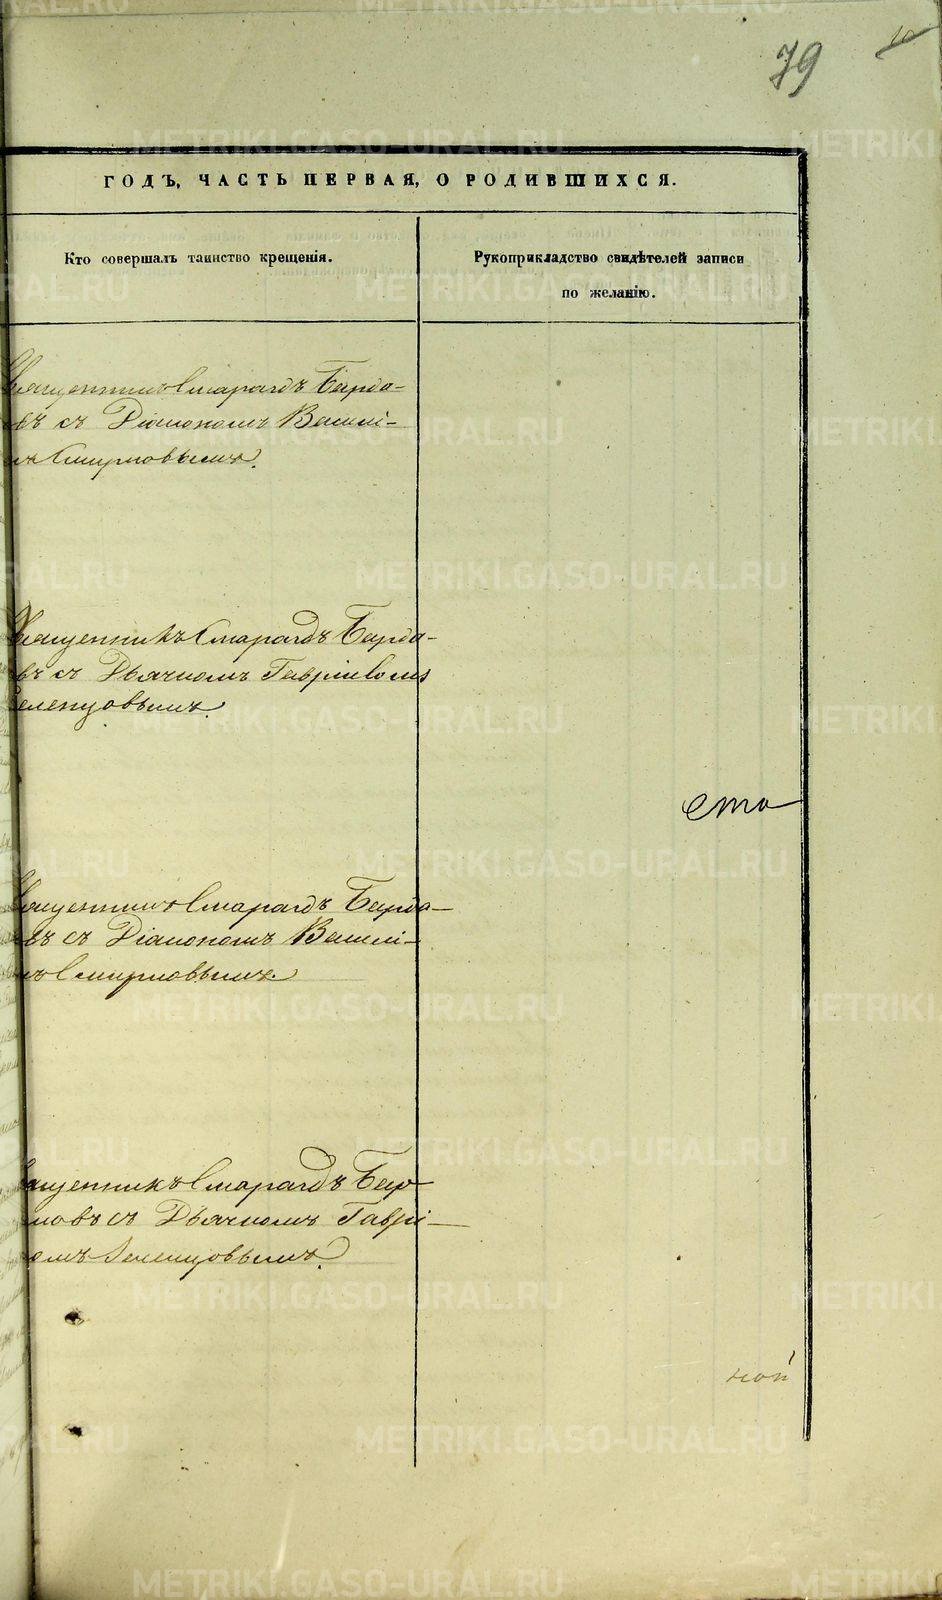 79
10
ГОДЪ, ЧАСТЬ ПЕРВАЯ, О РОДИВШИХСЯ.
Кто совершалъ таинство крещенія.
Рукоприкладство свидѣтелей записи
по желанію.
Священникъ Смарагдъ Бирю-
въ съ Діакономъ Василі-
мъ Смирновымъ.
Священникъ Смарагдъ
въ съ Дьячкомъ Гавріиломъ
Зеленцовымъ.
ста
Священникъ Смарагдъ
въ съ Діакономъ Василі-
мъ Смирновымъ.
Священникъ Смарагдъ
ковъ съ Дьячкомъ Гаврі-
омъ Зеленцовымъ.
ной
METRIKI.GASO-URAL.RU